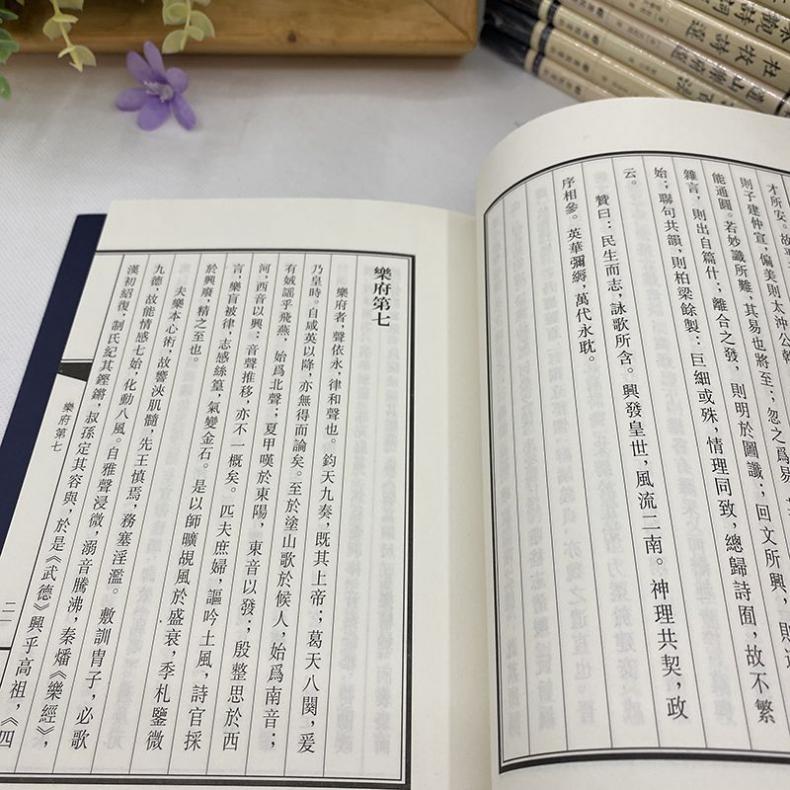 才所安。故
則子建仲宣，偏美則太沖公幹
能通圓。若妙識所難，其易也將至；忽之爲易，
雜言，則出自篇什；離合之發，則明於圖讖；回文所興，則道
始；聯句共韻，則柏梁餘製：巨細或殊，情理同致，總歸詩囿，故不繁
云。
贊曰：民生而志，詠歌所含。興發皇世，風流二南。神理共契，政
序相參。英華彌縟，萬代永耽。
樂府第七
樂府者，聲依永，律和聲也。鈞天九奏，既其上帝；葛天八闋，爰
乃皇時。自咸英以降，亦無得而論矣。至於塗山歌於候人，始爲南音；
有娀謠乎飛燕，始爲北聲；夏甲嘆於東陽，東音以發；殷整思於西
河，西音以興：音聲推移，亦不一概矣。匹夫庶婦，謳吟土風，詩官採
言，樂盲被律，志感絲篁，氣變金石。是以師曠覘風於盛衰，季札鑒微
於興廢，精之至也。
夫樂本心術，故響浹肌髓，先王慎焉，務塞淫濫。敷訓胄子，必歌
九德，故能情感七始，化動八風。自雅聲浸微，溺音騰沸，秦燔《樂經》，
漢初紹復，制氏紀其鏗鏘，叔孫定其容與，於是《武德》興乎高祖，《四
樂府第七
二一